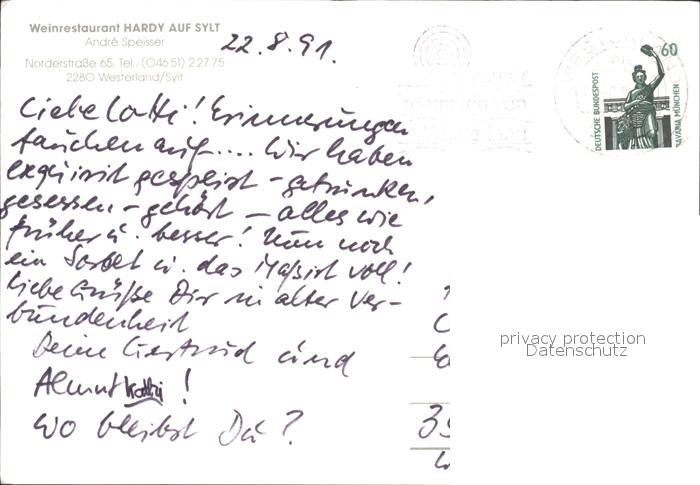 Weinrestaurant HARDY AUF SYLT
André Speisser
Norderstraße 65, Tel. (04651) 22775
2280 Westerland/Sylt
22.8.91.
Liebe Lotti! Erinnerungen
tauchen auf.... Wir haben
exquisit gespeist - getrunken,
gesessen - gehört - alles wie
früher u. besser! Nun noch
ein Sorbet u. das Maß ist voll!
Liebe Grüße Dir in alter Ver-
bundenheit
Deine Gertrud und
Almut !
Wo bleibst Du?
60
DEUTSCHE BUNDESPOST
BAVARIA MÜNCHEN
privacy protection
Datenschutz